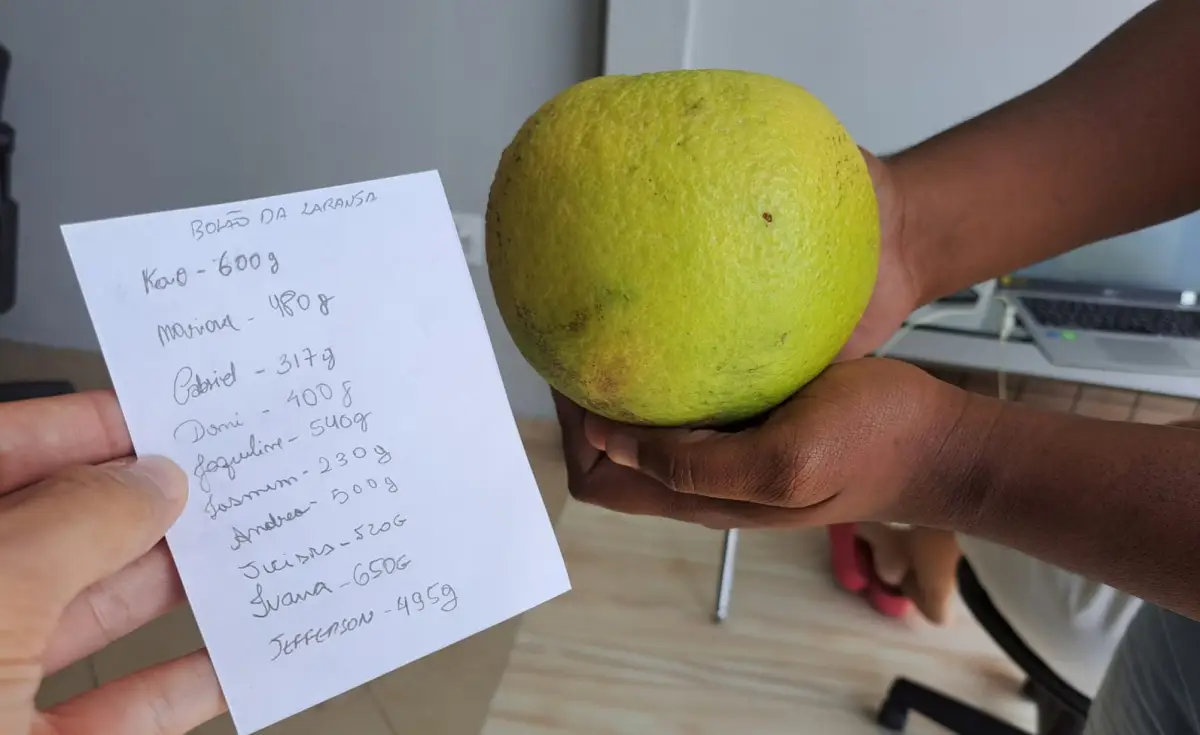 BOLÃO DA LARANJA
Kaio - 600g
Mariana - 480g
Gabriel - 317g
Dani - 400g
Jaqueline - 540g
Jasmim - 230g
Andrea - 500g
- 520G
Ivana - 650G
JEFFERSON - 495g